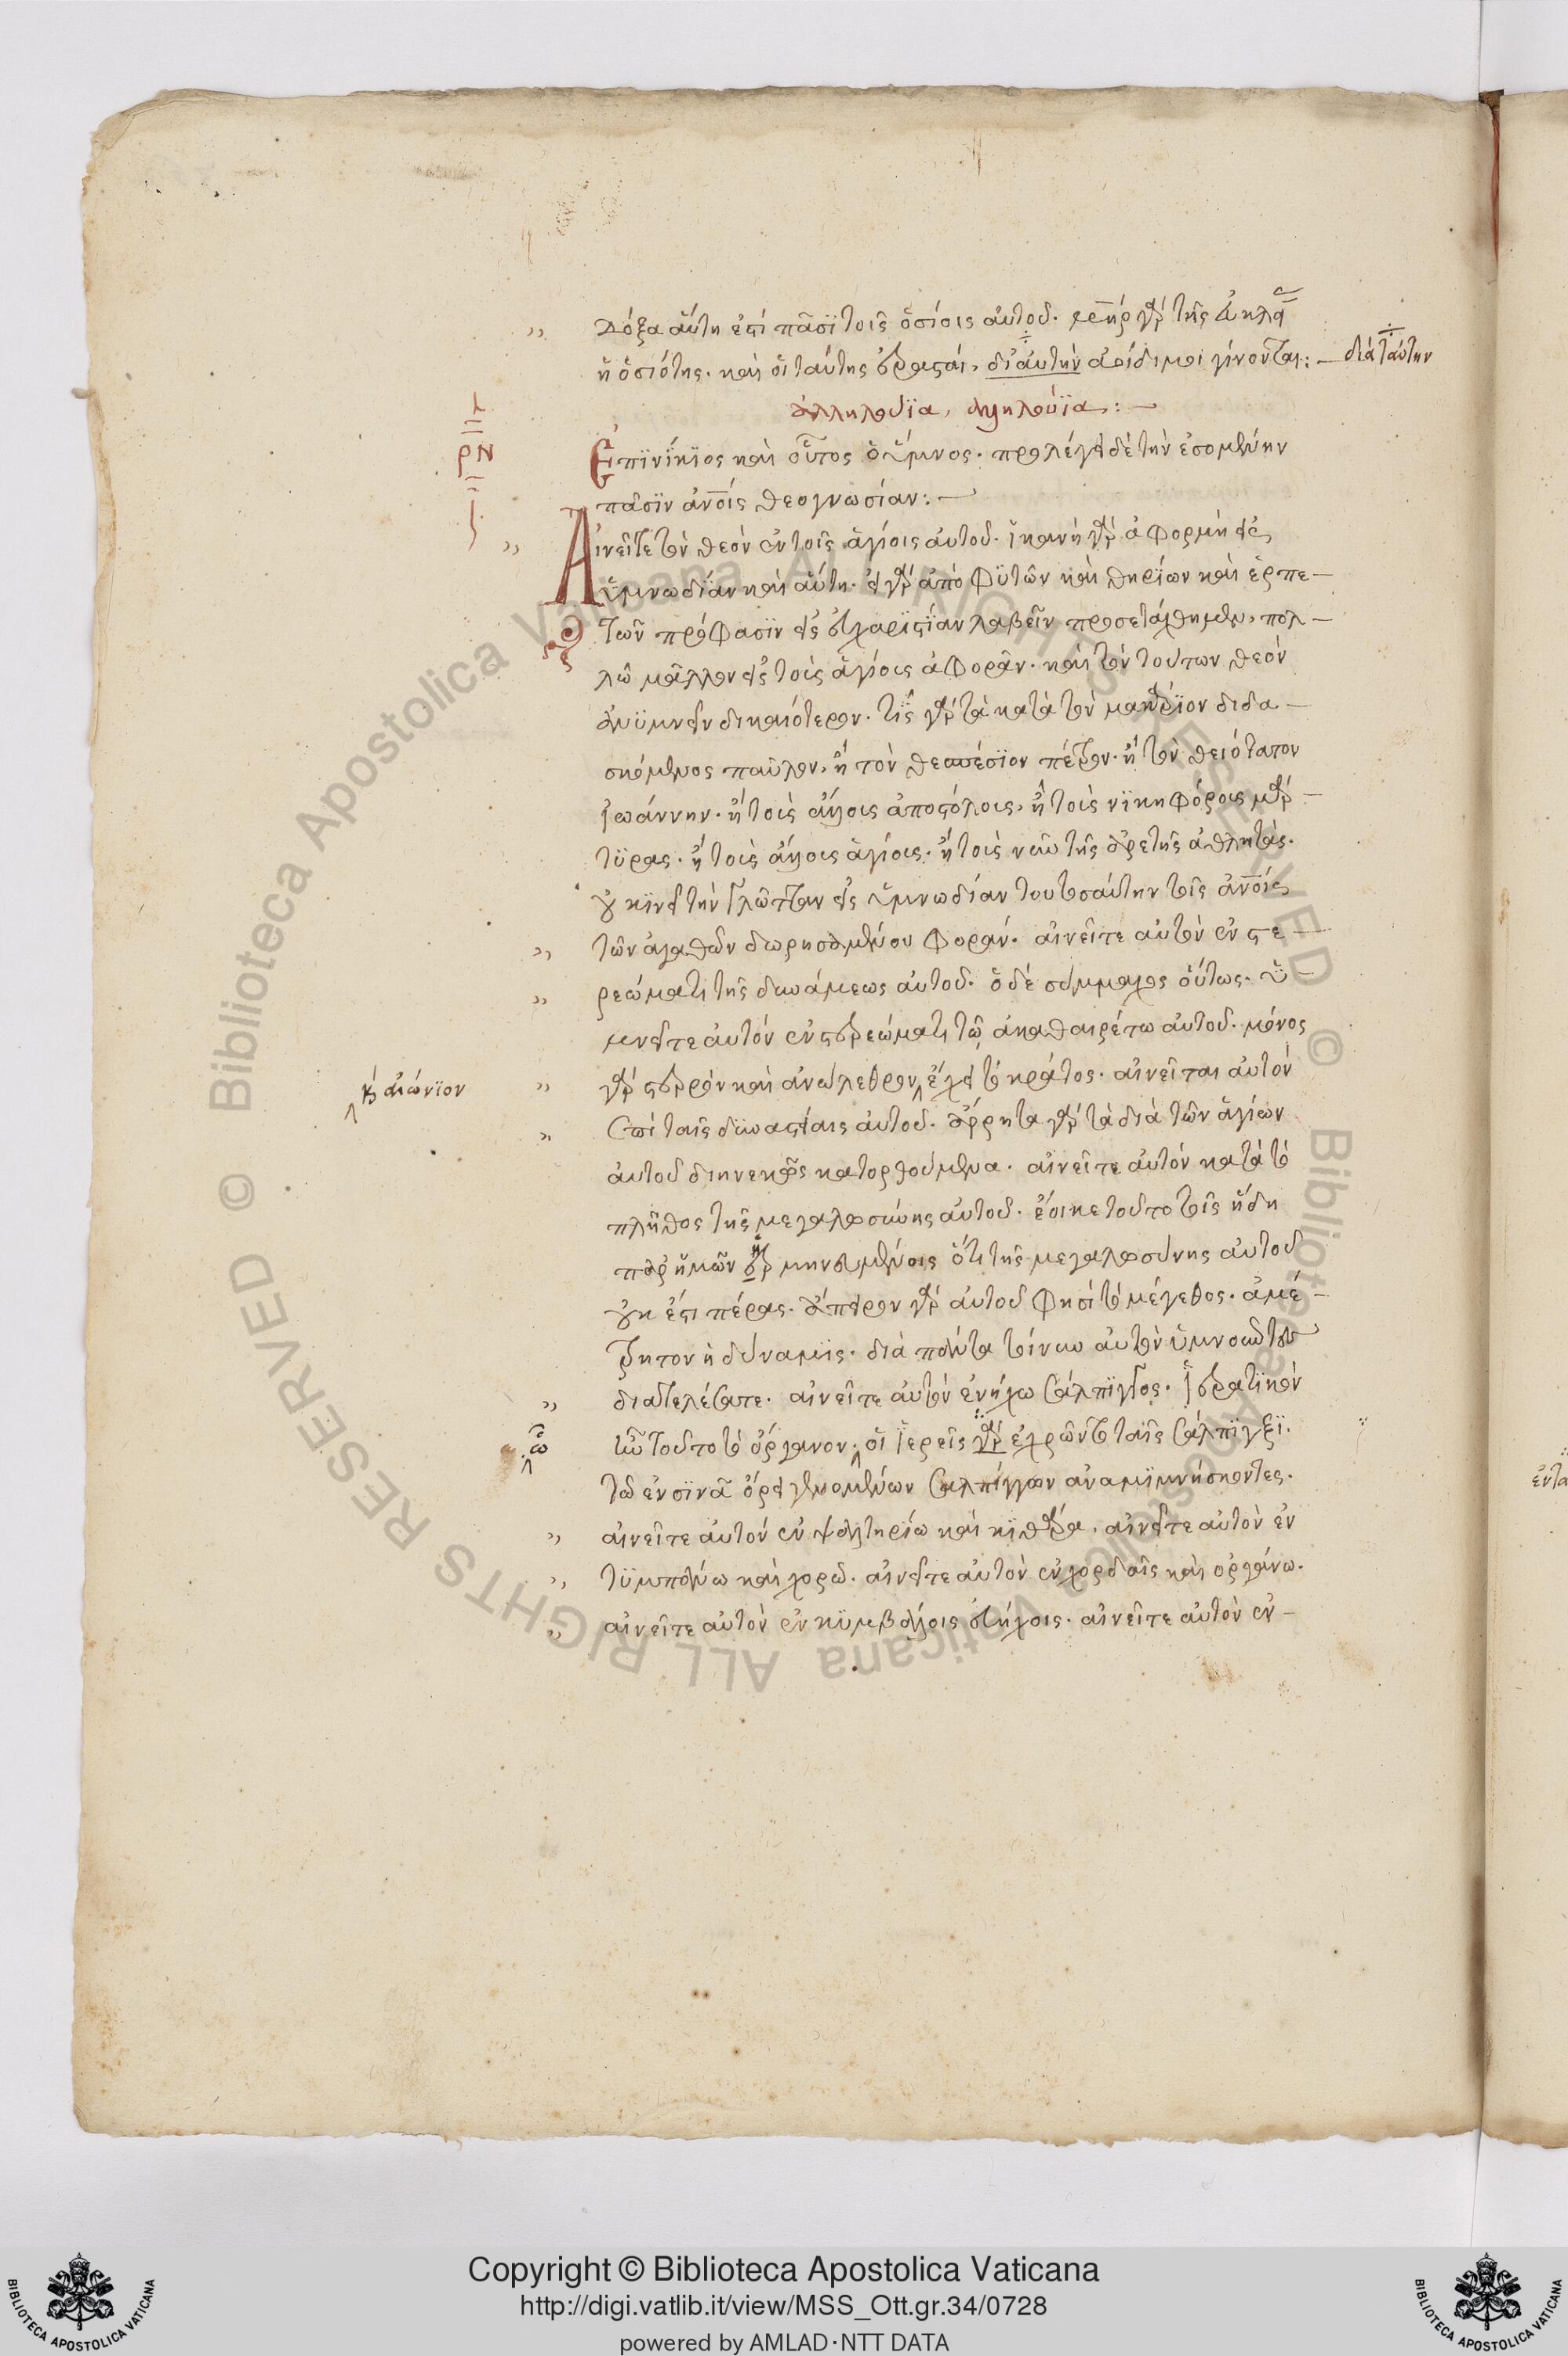 δόξα αὕτη ἐστὶ πᾶσϊ τοῖς ὁσίοις αὐτοῦ. γὰρ τῆς
ἡ ὁσιότης. καὶ οἱ ταύτης ἐρασταί, δι αὐτὴν ἀοίδιμοι γίνονται: — διὰ ταύτην
ἀλληλούϊα, ἀλληλούϊα: —
ρν
Ἐπϊνίκϊος καὶ οὗτος ὁ ὕμνος. προλέγει δὲ τὴν ἐσομένην
πᾶσϊν ἀνοις θεογνωσίαν: —
Αἰνεῖτε τὸν θεὸν ἐν τοῖς ἁγίοις αὐτοῦ. ἱκανὴ γὰρ ἀφορμὴ εἰς
ὑμνωδίαν καὶ αὕτη. εἰ γὰρ ἀπὸ φϋτῶν καὶ θηρίων καὶ ἑρπε—
τῶν πρόφασϊν εἰς εὐχαρϊστϊαν λαβεῖν προσετάχθημεν, πολ—
λῶ μᾶλλον εἰς τοὺς ἁγίους ἀφορᾶν. καὶ τὸν τούτων θεὸν
ἀνϋμνεῖν δικαιότερον. τίς γὰρ τὰ κατὰ τὸν μακάρϊον διδα—
σκόμενος παῦλον, ἢ τὸν θεσπέσϊον πέτρον. ἢ τὸν θειότατον
ἰωάννην. ἢ τοὺς ἄλλους ἀποστόλους, ἢ τοὺς νϊκηφόρους μάρ—
τϋρας. ἢ τοὺς ἄλλους ἁγίους. ἢ τοὺς νῦν τῆς ἀρετῆς ἀθλητὰς.
οὐ κϊνεῖ τὴν γλῶτταν εἰς ὑμνωδίαν τοῦ τοσαύτην τοῖς ἀνοις
τῶν ἀγαθῶν δωρησαμένου φοράν. αἰνεῖτε αὐτὸν ἐν στε—
ρεώματι τῆς δυνάμεως αὐτοῦ. ὁ δὲ σύμμαχος οὕτως. ὑ—
μνεῖτε αὐτὸν ἐν στερεώματι τῶ ἀκαθαιρέτω αὐτοῦ. μόνος
καὶ αἰώνϊον
γὰρ στερρὸν καὶ ἀνώλεθρον ἔχει τὸ κράτος. αἰνεῖται αὐτὸν
ἐπὶ ταῖς δϋναστείαις αὐτοῦ. ἄρρητα γὰρ τὰ διὰ τῶν ἁγίων
αὐτοῦ διηνεκῶς κατορθούμενα. αἰνεῖτε αὐτὸν κατὰ τὸ
πλῆθος τῆς μεγαλοσύνης αὐτοῦ. ἔοικε τοῦτο τοῖς ἤδη
παρ ἡμῶν μηνευμένοις ὅτι τῆς μεγαλοσύνης αὐτοῦ
οὐκ ἔστι πέρας. ἄπειρον γὰρ αὐτοῦ φησὶ τὸ μέγεθος. ἀμέ—
τρητον ἡ δύναμϊς. διὰ πάντα τοίνυν αὐτὸν ὑμνοῦντες
διατελέσατε. αἰνεῖτε αὐτὸν ἐν ἤχω σάλπϊγγος. ἱερατϊκὸν
ἦν τοῦτο τὸ ὄργανον, οἱ ἱερεῖς γὰρ ἐχρῶντο ταῖς σάλπϊγξϊ.
τῶ ἐν σϊνᾶ ὄρει γενομένων σαλπίγγων ἀναμϊμνήσκοντες.
αἰνεῖτε αὐτὸν ἐν ψαλτηρίω καὶ κϊθάρα, αἰνεῖτε αὐτὸν ἐν
τϋμπάνω καὶ χορῶ. αἰνεῖτε αὐτὸν ἐν χορδαῖς καὶ ὀργάνω.
αἰνεῖτε αὐτὸν ἐν κϋμβάλοις εὐήχοις. αἰνεῖτε αὐτὸν ἐν—
Copyright © Biblioteca Apostolica Vaticana
http://digi.vatlib.it/view/MSS_Ott.gr.34/0728
powered by AMLAD·NTT DATA